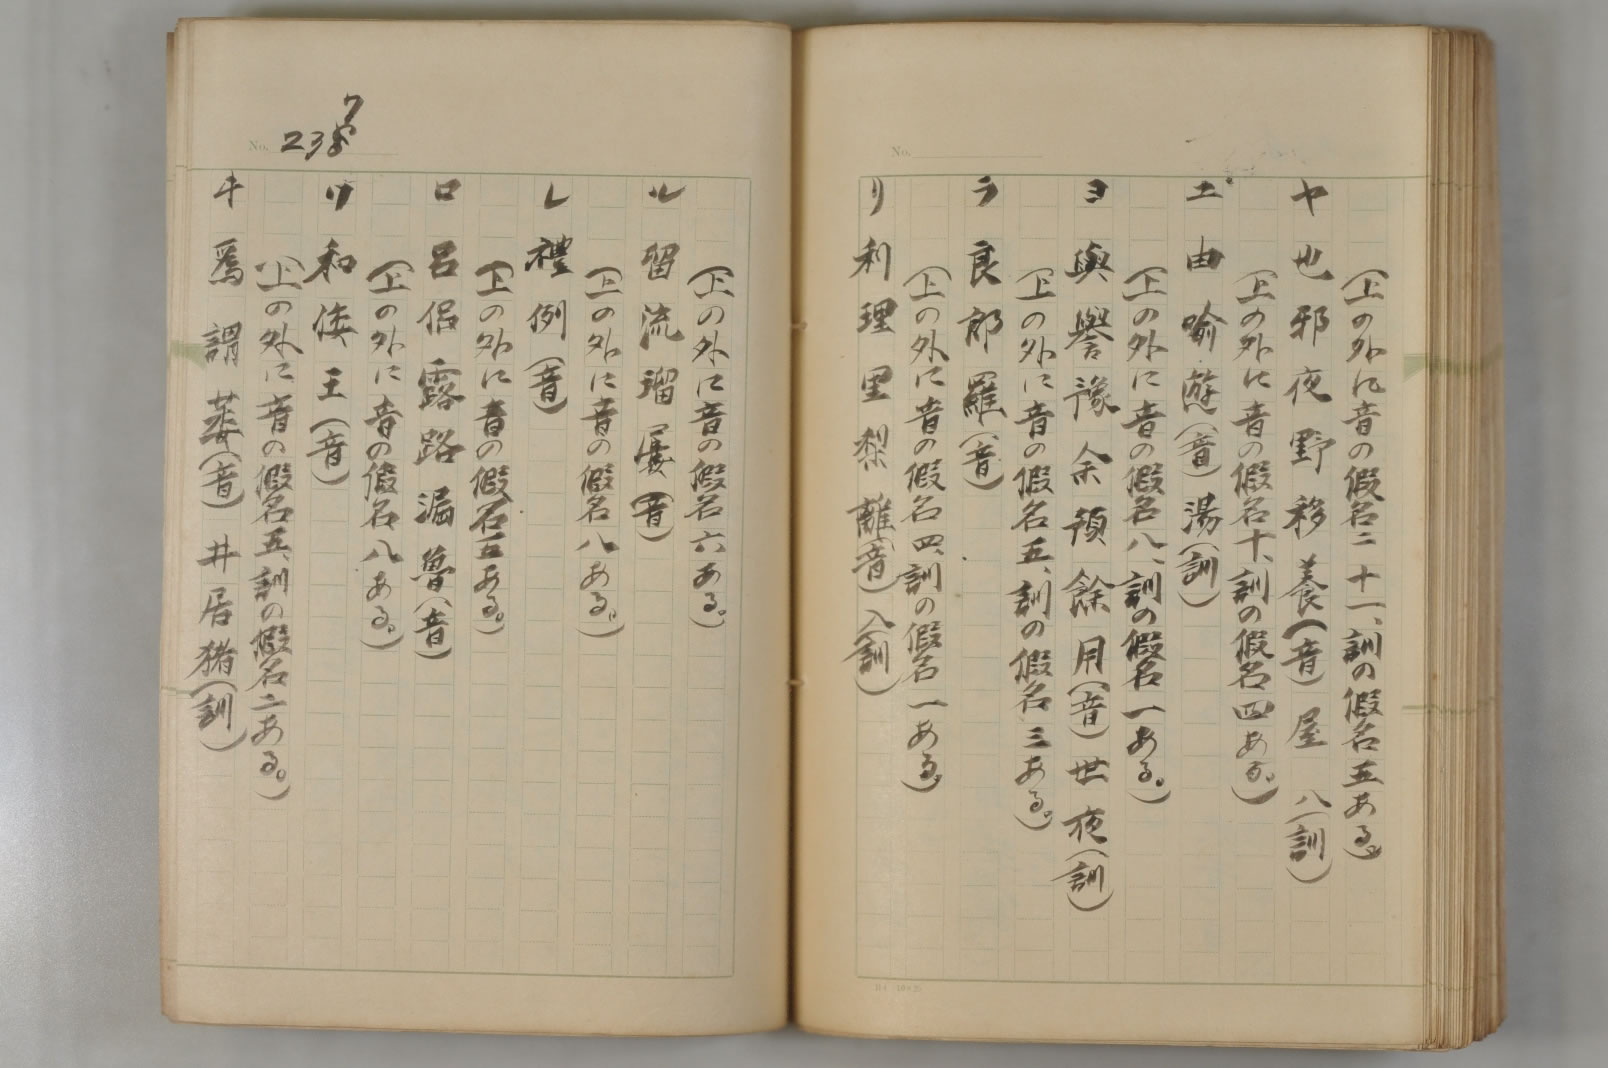 （上の外に音の假名二十一、訓の假名五ある。）
ヤ 也 邪 夜 野 移 養（音） 屋 八（訓）
（上の外に音の假名十、訓の假名四ある。）
ユ 由 喩 遊（音） 湯（訓）
（上の外に音の假名八、訓の假名一ある。）
ヨ 與 譽 豫 余 預 餘 用（音） 世 夜（訓）
（上の外に音の假名五、訓の假名三ある。）
ラ 良 郎 羅（音）
（上の外に音の假名四、訓の假名一ある。）
リ 利 理 里 梨 離（音） 入（訓）
No.
237
（上の外に音の假名六ある。）
ル 留 流 瑠 屢（音）
（上の外に音の假名八ある。）
レ 禮 例（音）
（上の外に音の假名五ある。）
ロ 呂 侶 露 路 漏 魯（音）
（上の外に音の假名八ある。）
ワ 和 倭 王（音）
（上の外に音の假名五、訓の假名二ある。）
ヰ 爲 謂 萎（音） 井 居 猪（訓）
No.